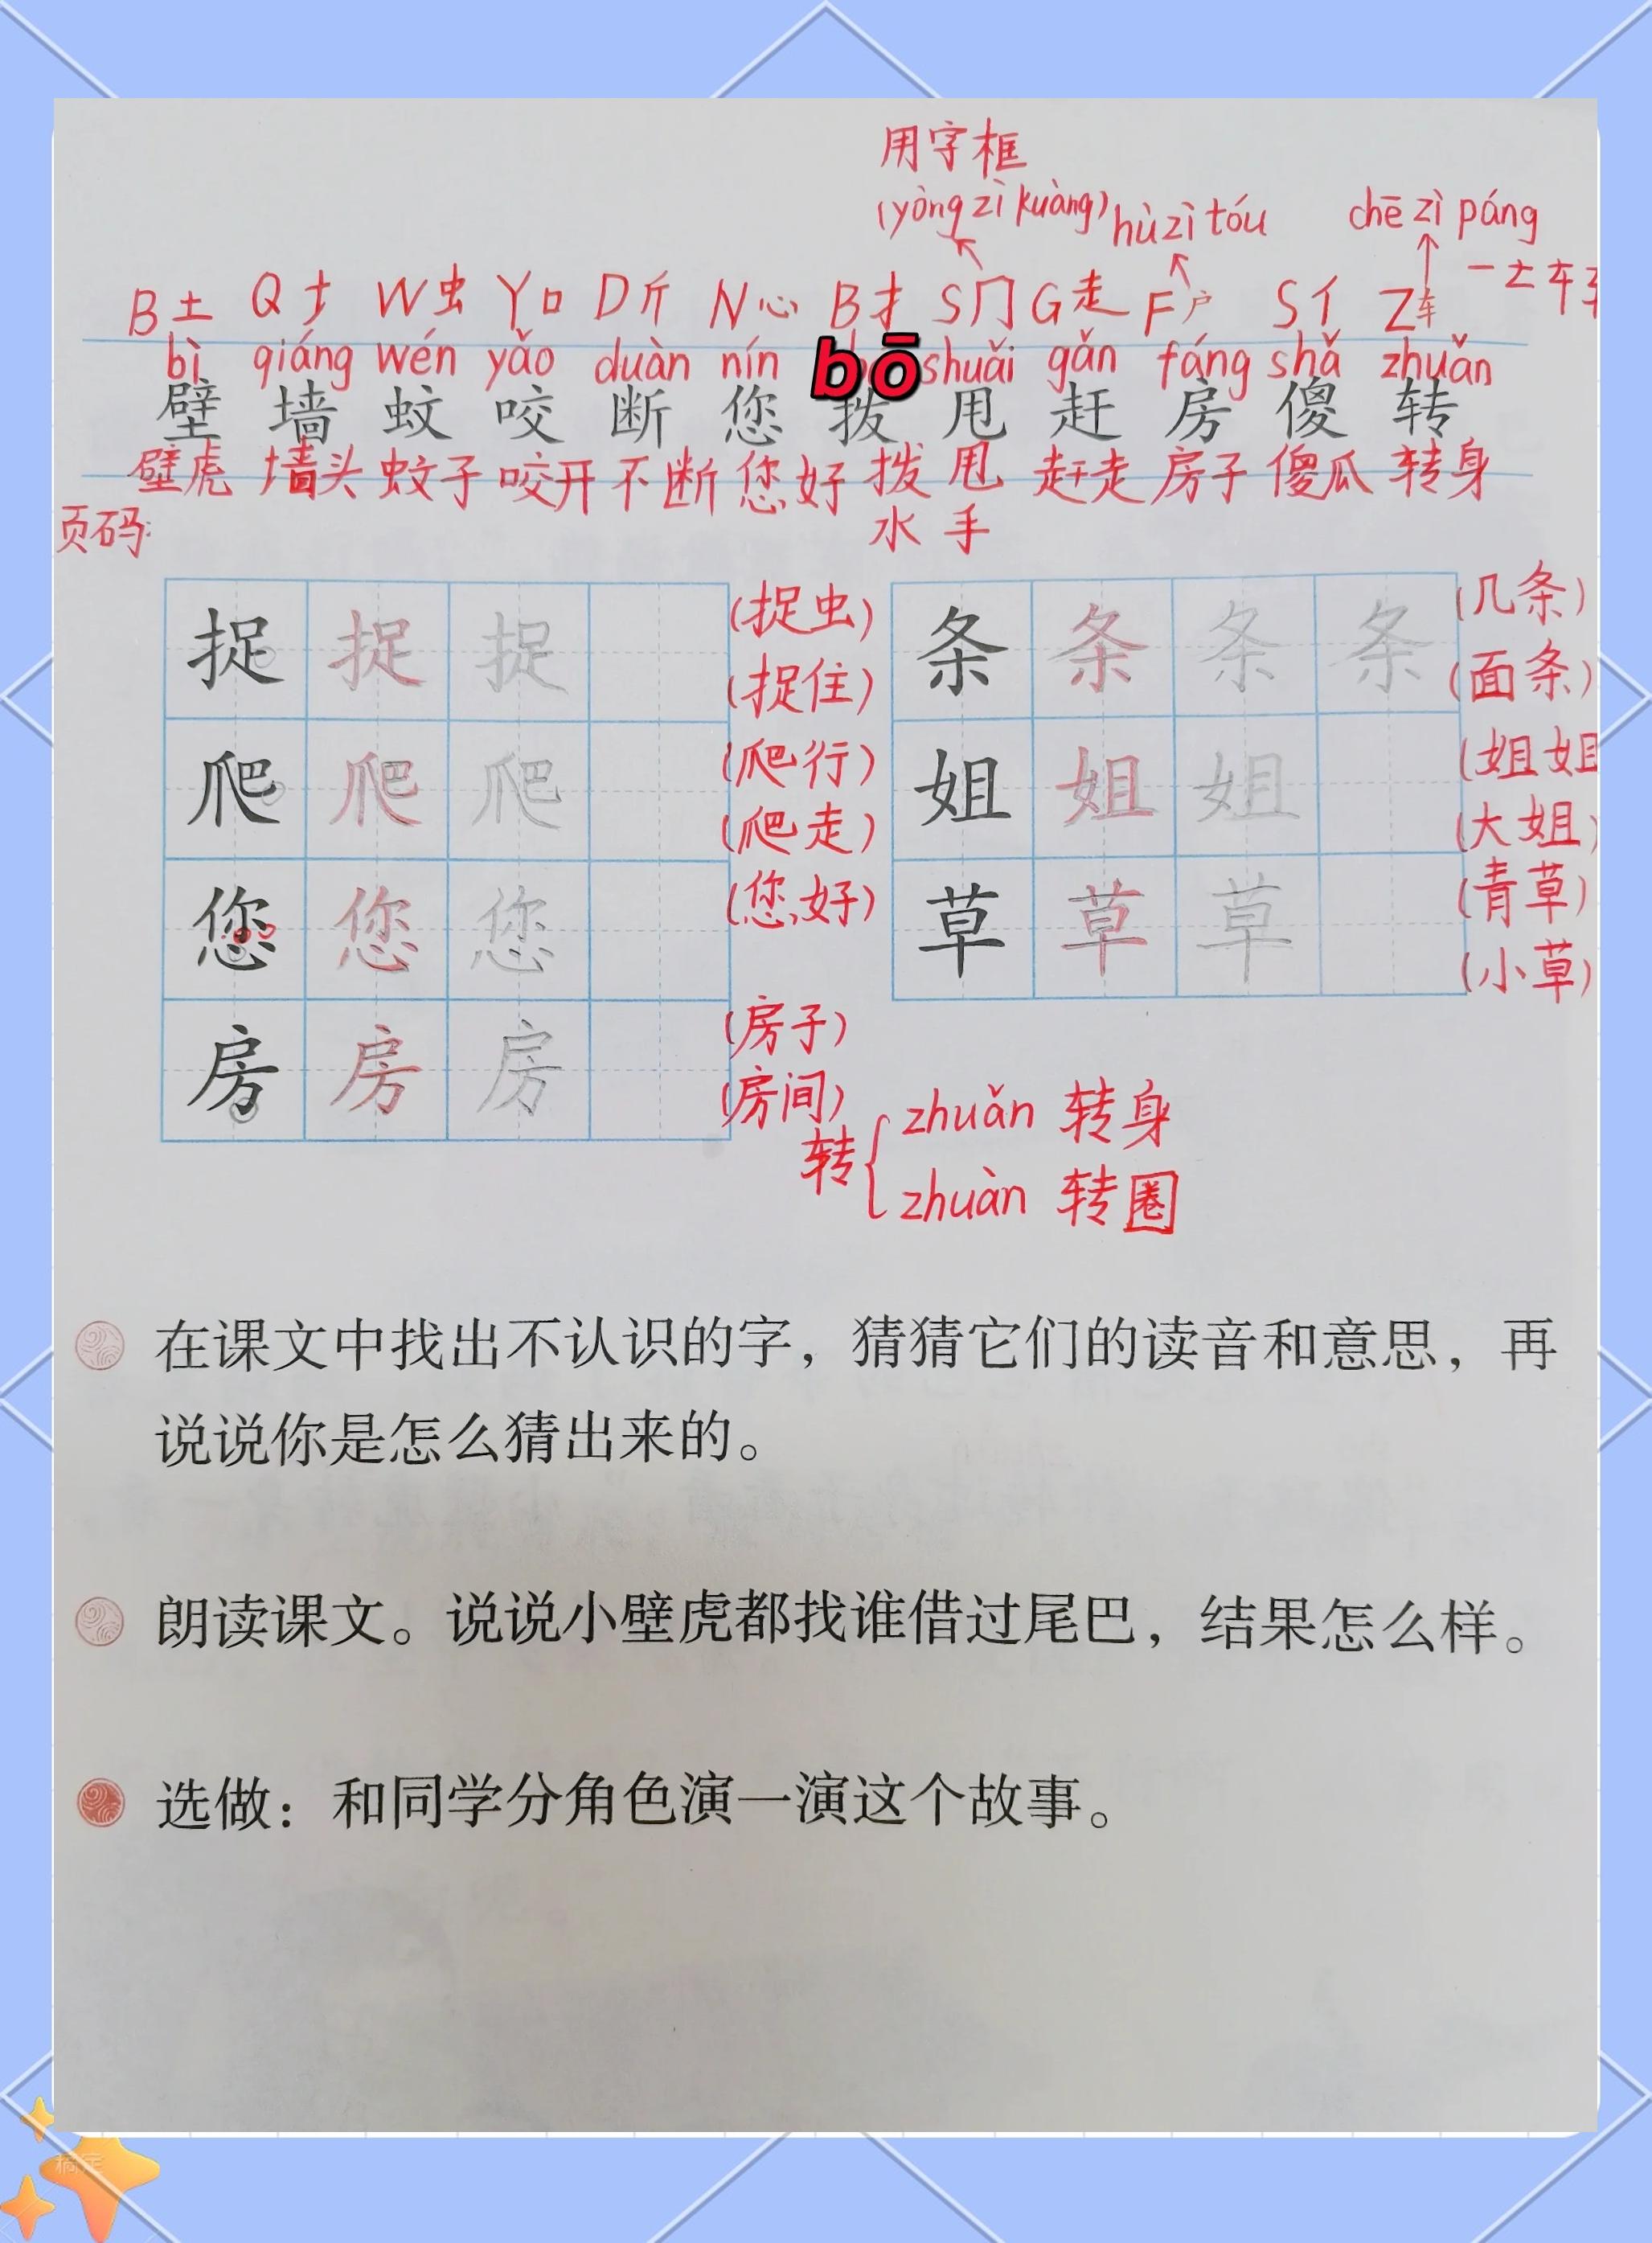 用字框
(yòng zì kuàng) hù zì tóu chē zì páng
B土 Q扌 W虫 Y口 D斤 N心 B扌 S冂 G走 F户 S亻 Z车 一 车
bì qiáng wén yǎo duàn nín bō shuǎi gǎn fáng shǎ zhuǎn
壁 墙 蚊 咬 断 您 拨 甩 赶 房 傻 转
壁虎 墙头 蚊子 咬开 不断 您好 拨水 甩手 赶走 房子 傻瓜 转身
页码:
捉 捉 捉 (捉虫) (捉住)
条 条 条 条 (几条) (面条)
爬 爬 爬 (爬行) (爬走)
姐 姐 姐 (姐姐) (大姐)
您 您 您 (您好)
草 草 草 (青草) (小草)
房 房 房 (房子) (房间)
转{ zhuǎn 转身
zhuàn 转圈
在课文中找出不认识的字，猜猜它们的读音和意思，再
说说你是怎么猜出来的。
朗读课文。说说小壁虎都找谁借过尾巴，结果怎么样。
选做：和同学分角色演一演这个故事。
稿定